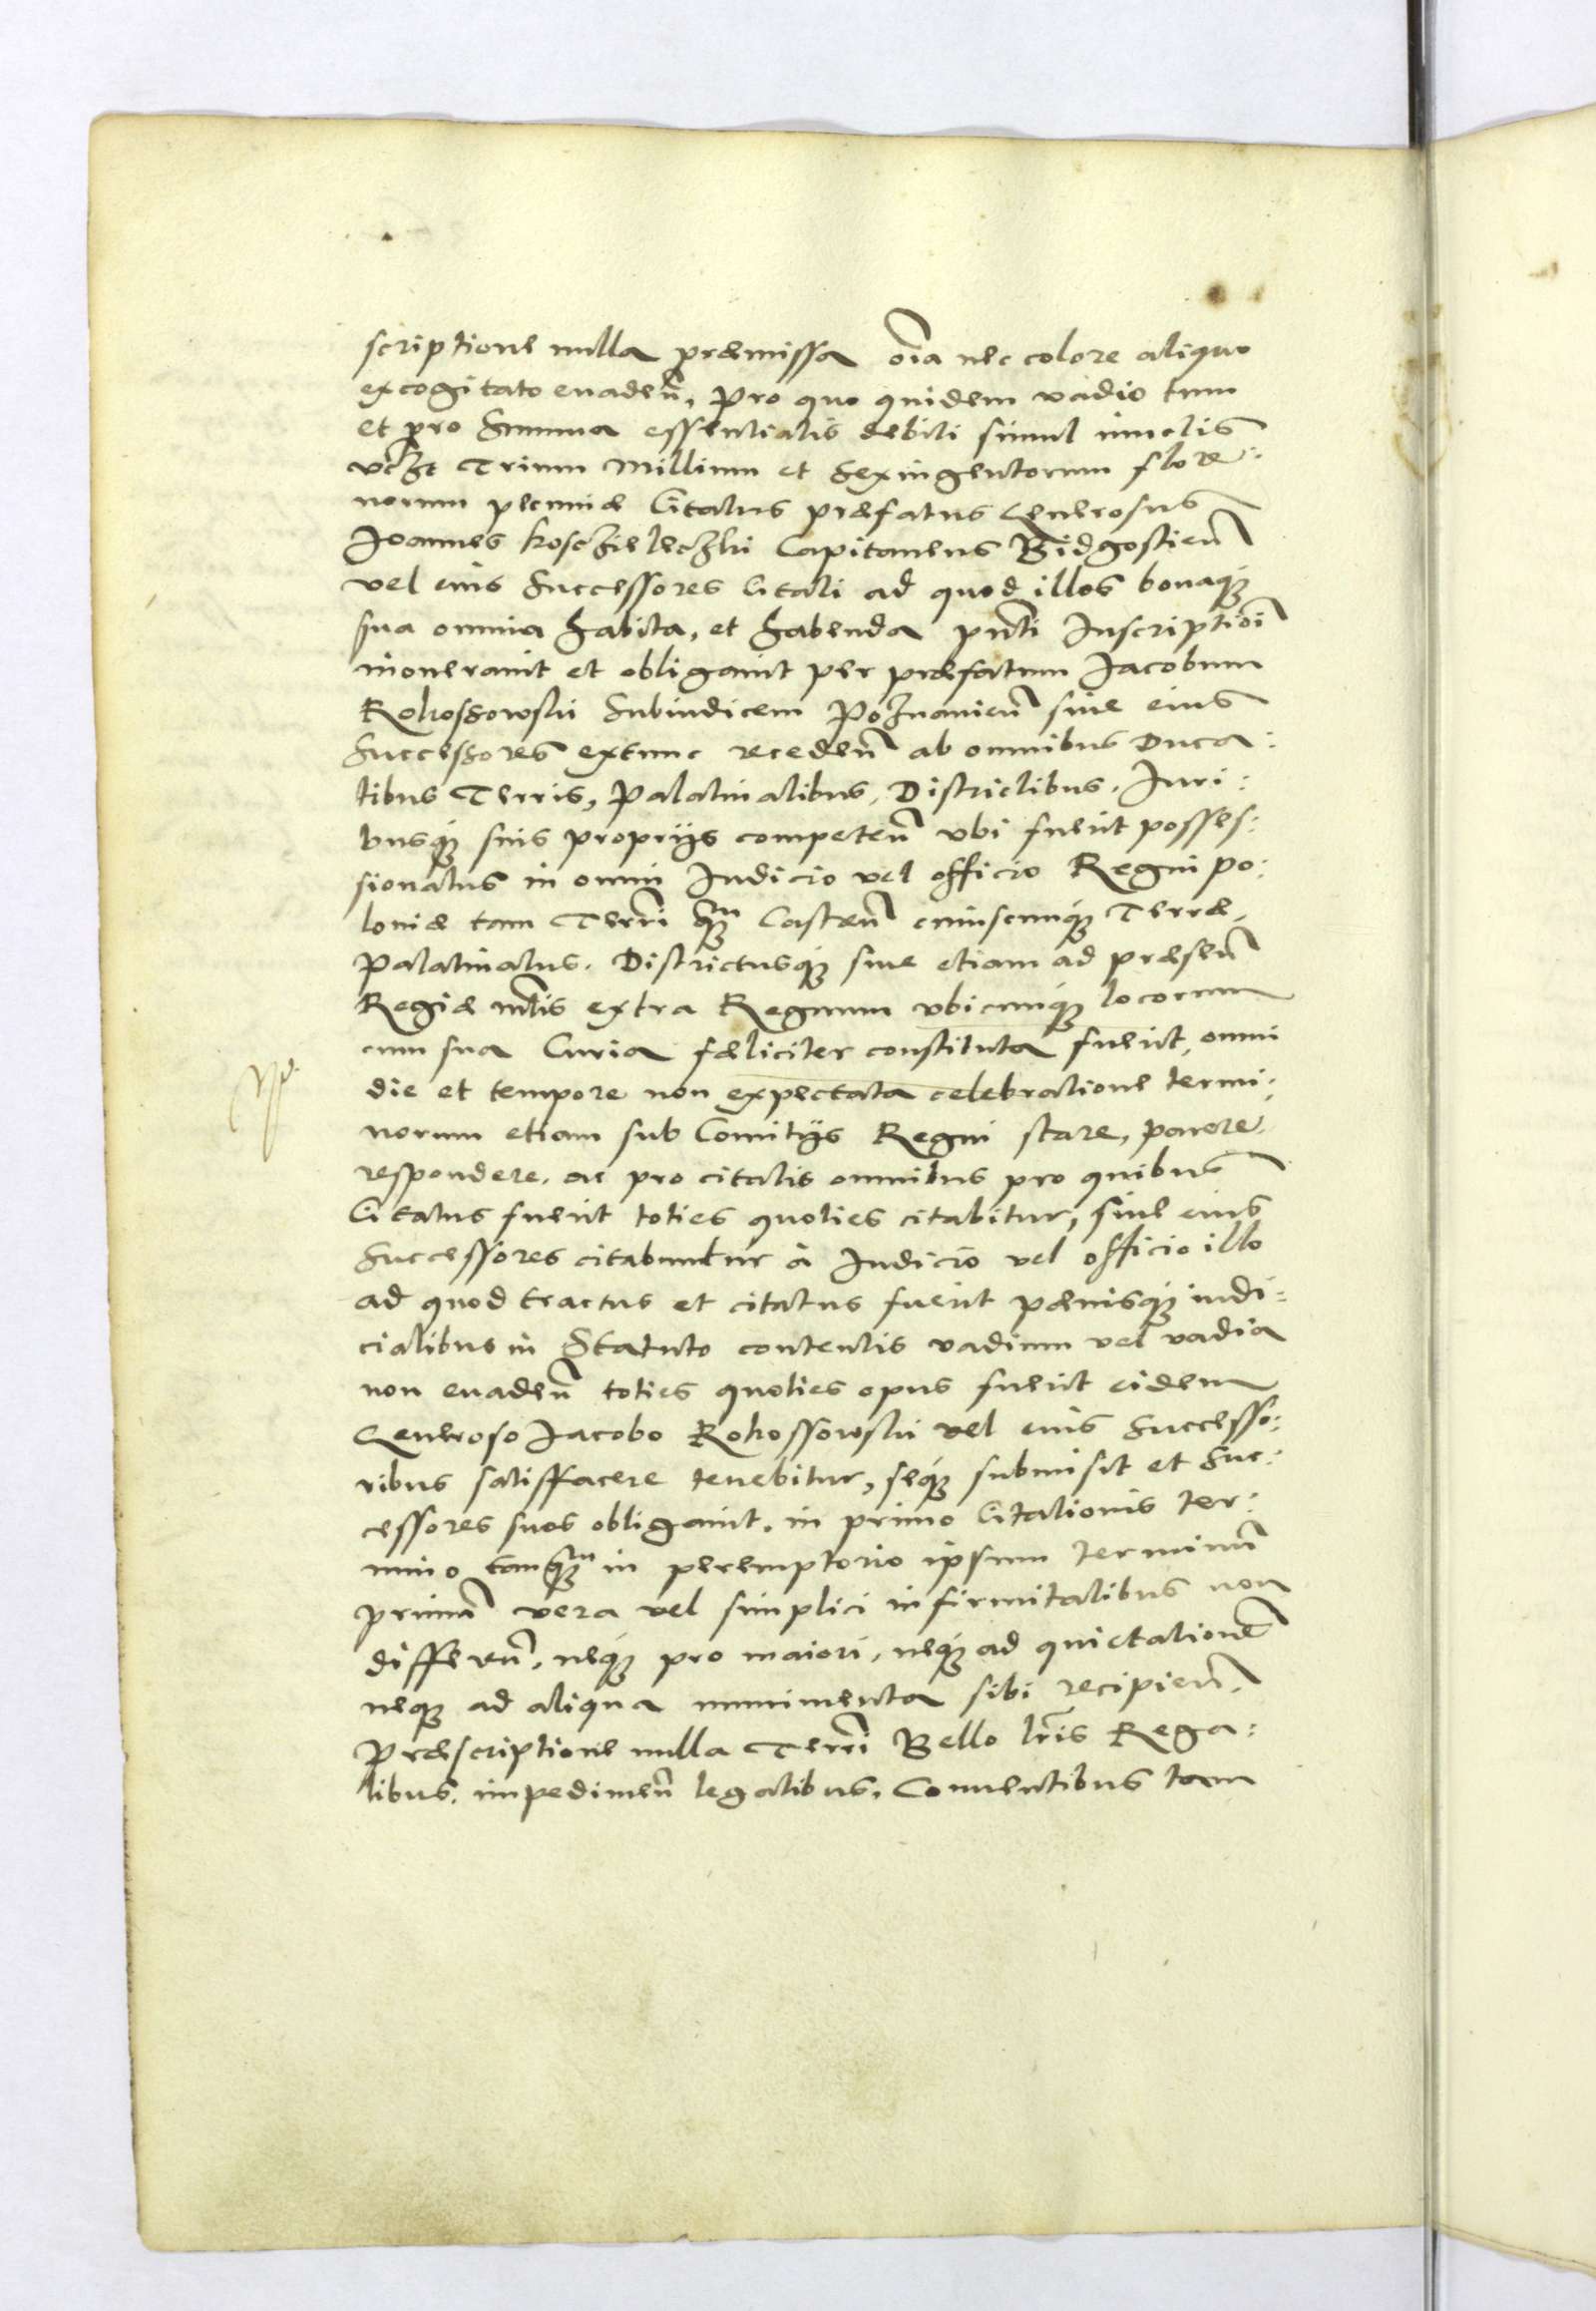 scriptione nulla præmissa oĩa nec colore aliquo
excogitato evadeñ, Pro quo quidem vadio tum
et pro Summa essentialis debiti simul iunctis
vcz̃t Trium Millium et Sexingentorum flore:
norum pecuniæ Citatus præfatus Generosus
Joannes Kosczieleczki Capitaneus Bidgostieñ
vel eius Successores Citati ad quod illos bonaq́;
sua omnia habita, et habenda pñti Inscriptioĩ
inoneravit et obligavit per præfatum Jacobum
Rokossowski Subiudicem Poznanieñ sive eius
Successores extunc recedeñ ab omnibus Duca:
tibus Terris, Palatinatibus, Districtibus, Juri:
busq́; suis proprijs competeñ vbi fuerit posses:
sionatus in omni Judicio vel officio Regni Po:
loniæ tam Terrĩ q̃m Castreñ cuiuscunq́; Terræ,
Palatinatus, Districtusq́; sive etiam ad præseñ
Regiæ mt̃is extra Regnum vbicunq́; locorum
cum sua Curia fæliciter constituta fuerit, omni
die et tempore non expectata celebratione termi:
norum etiam sub Comitijs Regni stare, parere
respondere, ac pro citatis omnibus pro quibus
Citatus fuerit toties quoties citabitur, sive eius
Successores citabuntur à Judicio vel officio illo
ad quod tractus et citatus fuerit pænisq́; iudi:
cialibus in Statuto contentis vadium vel vadia
non evadeñ toties quoties opus fuerit eidem
Generoso Jacobo Rokossowski vel eius Successo:
ribus satisffacere tenebitur, seq́; submisit et Suc:
cessores suos obligavit, in primo Citationis ter:
mino tanq̃m in peremptorio ipsum terminũ
primũ vera vel simplici infirmitatibus non
differeñ, neq́; pro maiori, neq́; ad quietationẽ
neq; ad aliqua munimenta sibi recipieñ,
Præscriptione nulla Terrĩ Bello lr̃is Rega:
libus, impedimeñ legalibus, Conventibus tam